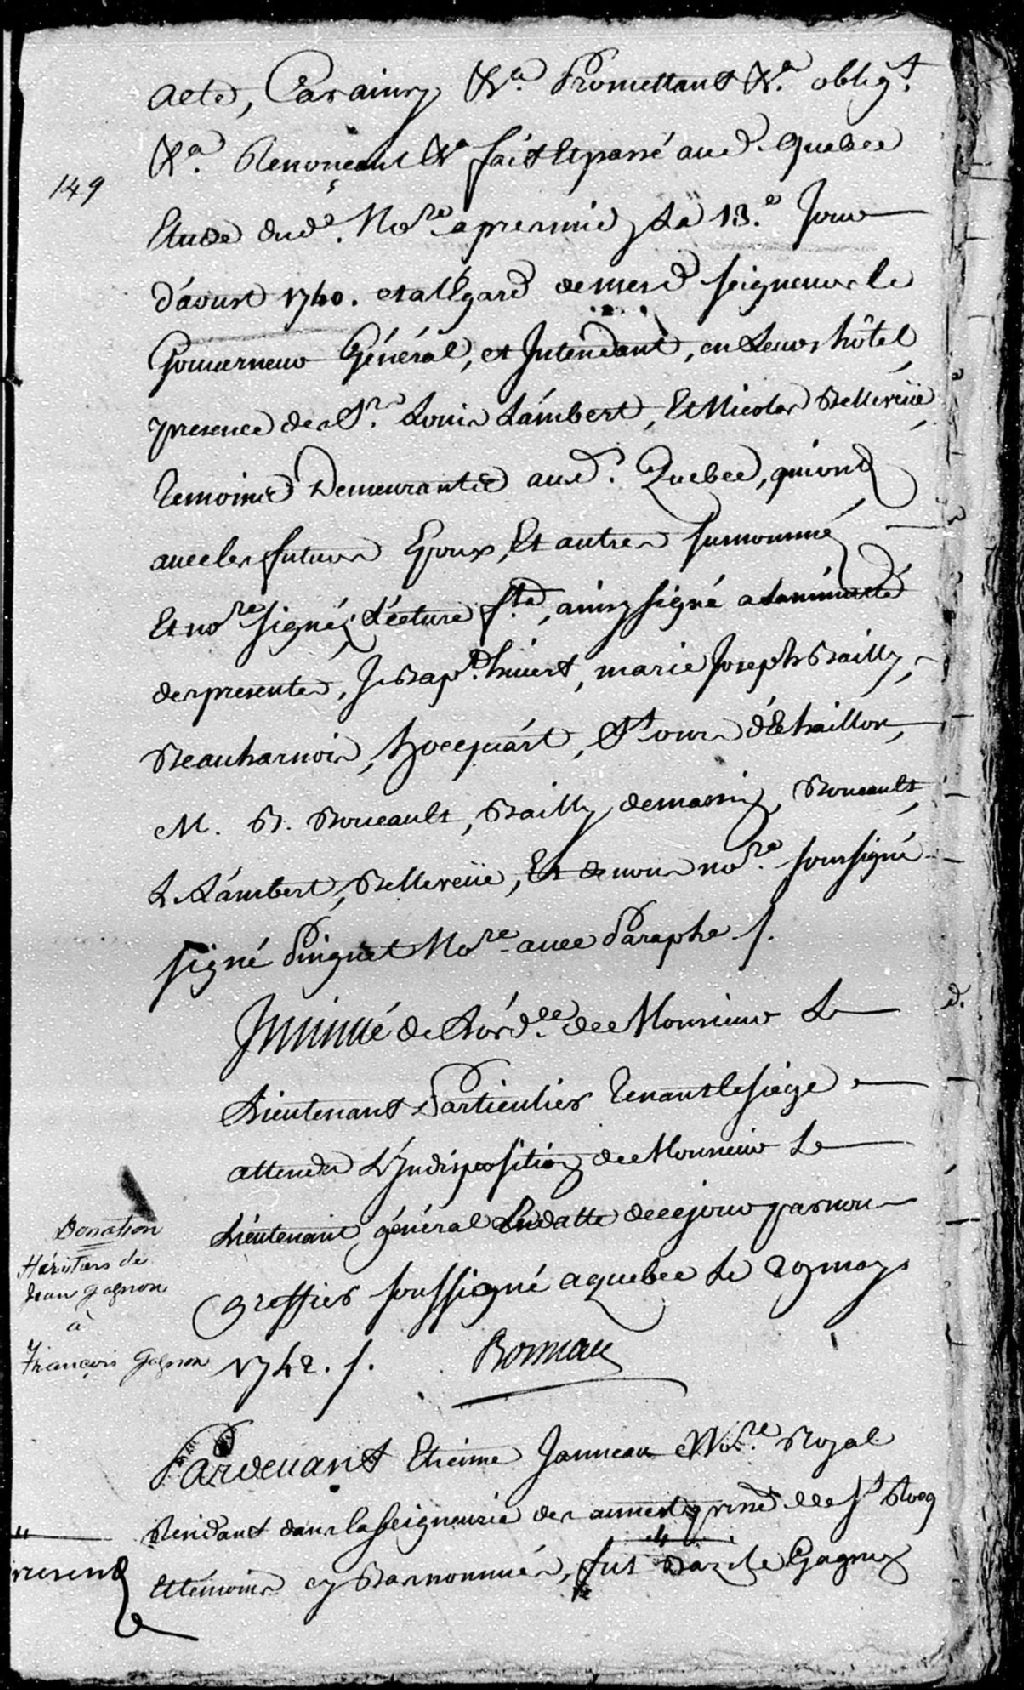 acte, Car ainsy &c.a Promettant &c.a oblig.t
&c.a Renonçant &c.a fait Et passé aud. Quebec
149
Etude dud.t No.re apresmidy Le 13.e Jour
d'aoust 1740. et al'Egard de mesd. seigneurs le
Gouverneur Général, et Intendant, en Leurs hôtel
presence des S.rs Louis Lámbert, Et Nicolas Bellevüe,
temoins Demeurants aud.t Quebec, qui ont
avec les futurs Epoux, Et autres susnommés
Et no.re signé, Lecture f.te, ainsy signé a la minutte
des presentes, J. Bap.t huiert, marie Joseph Bailly,
Beauharnois, hocquárt, St ours d'Echaillon,
M. B. Boucault, Bailly demassin, Boucault,
L. Lámbert, Bellevüe, Et de nous no.re soussigné
signé Pinguet No.re avec Paraphe /.
Insinué de L'ord.ce de Monsieur Le
Lieutenant Particulier tenant le siege
attendu L'Indisposition de Monsieur Le
Lieutenant général En datte de ce jour par nous
Greffier soussigné a quebec Le 29 may
1742. /. Boisseau
Donation
Héritiers de
Jean Gagnon
à
François Gagnon
Pardevant Etienne Janneau No.re Royal
Residant dans la seigneurie des aunest present
Et temoins cy bas nommés, fut Gagnon